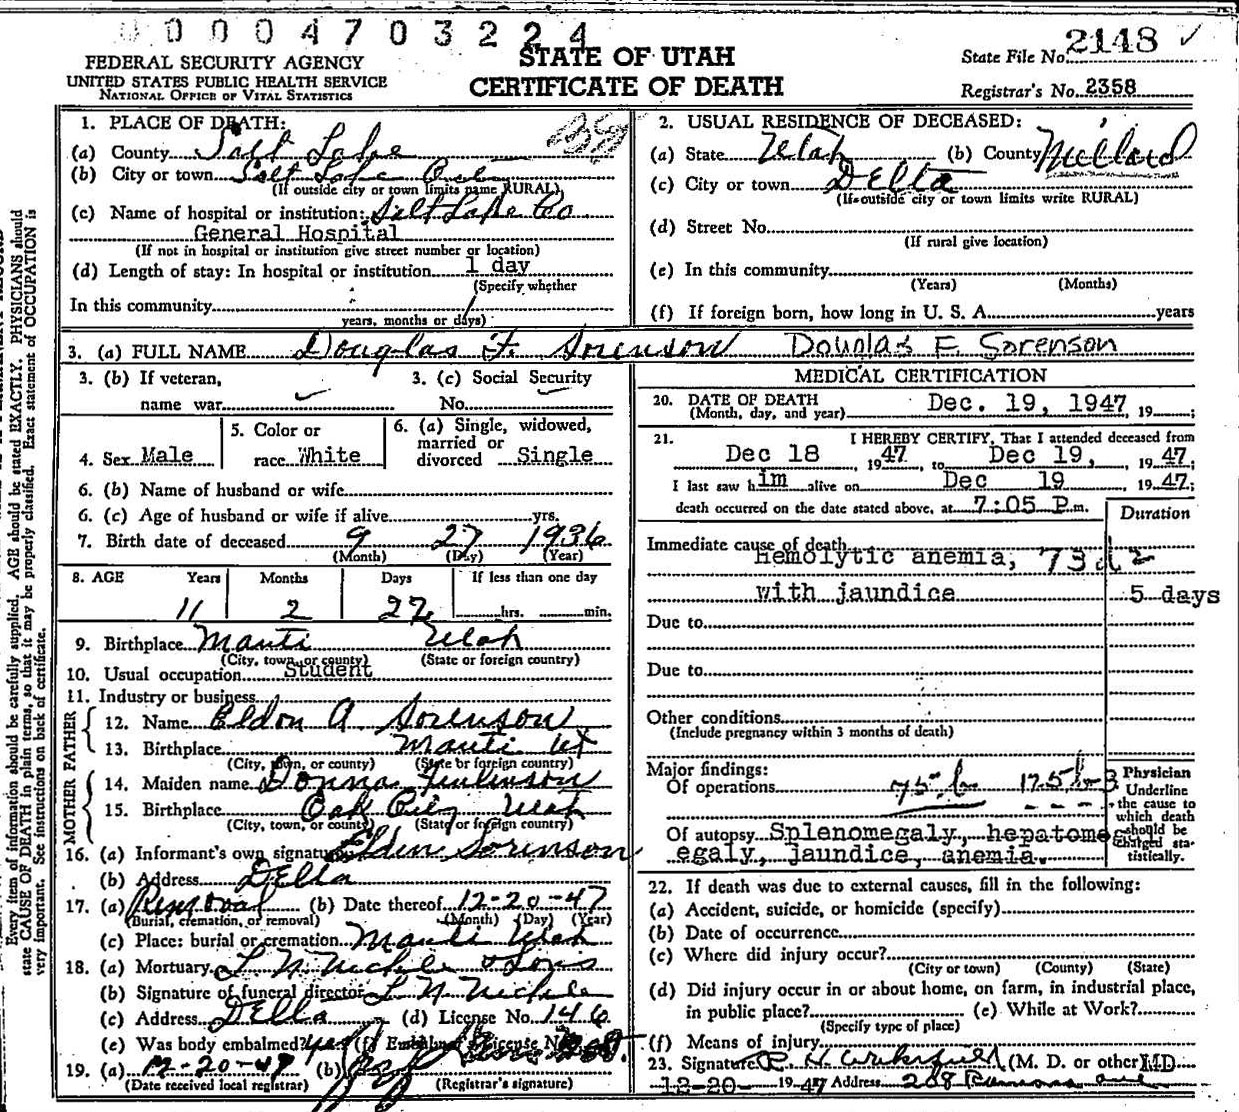 00004703224
STATE OF UTAH
CERTIFICATE OF DEATH
FEDERAL SECURITY AGENCY
UNITED STATES PUBLIC HEALTH SERVICE
NATIONAL OFFICE OF VITAL STATISTICS
State File No. 2148 ✓
Registrar's No. 2358
1. PLACE OF DEATH:
(a) County Salt Lake
(b) City or town Salt Lake City
(If outside city or town limits name RURAL)
(c) Name of hospital or institution: Salt Lake Co
General Hospital
(If not in hospital or institution give street number or location)
(d) Length of stay: In hospital or institution 1 day
(Specify whether
In this community
years, months or days)
2. USUAL RESIDENCE OF DECEASED:
(a) State Utah (b) County Millard
(c) City or town Delta
(If outside city or town limits write RURAL)
(d) Street No.
(If rural give location)
(e) In this community
(Years) (Months)
(f) If foreign born, how long in U. S. A. years
3. (a) FULL NAME Douglas F. Sorenson Douglas F. Sorenson
3. (b) If veteran, 3. (c) Social Security
name war No.
4. Sex Male 5. Color or race White 6. (a) Single, widowed, married or divorced Single
6. (b) Name of husband or wife
6. (c) Age of husband or wife if alive yrs.
7. Birth date of deceased 9 27 1936
(Month) (Day) (Year)
8. AGE Years Months Days If less than one day
11 2 22 hrs. min.
9. Birthplace Manti Utah
(City, town, or county) (State or foreign country)
10. Usual occupation Student
11. Industry or business
FATHER
12. Name Eldon A Sorenson
13. Birthplace Manti Ut
(City, town, or county) (State or foreign country)
MOTHER
14. Maiden name Donna
15. Birthplace Oak City Utah
(City, town, or county) (State or foreign country)
16. (a) Informant's own signature Elden Sorenson
(b) Address Delta
17. (a) Removal (b) Date thereof 12-20-47
(Burial, cremation, or removal) (Month) (Day) (Year)
(c) Place: burial or cremation Manti Utah
18. (a) Mortuary & Sons
(b) Signature of funeral director
(c) Address Delta (d) License No. 146
(e) Was body embalmed? yes (f) Embalmer's License No.
19. (a) 12-20-47 (b)
(Date received local registrar) (Registrar's signature)
MEDICAL CERTIFICATION
20. DATE OF DEATH
(Month, day, and year) Dec. 19, 1947, 19 ;
21. I HEREBY CERTIFY, That I attended deceased from
Dec 18, 1947 to Dec 19, 1947;
I last saw him alive on Dec 19 1947;
death occurred on the date stated above, at 7:05 P.m.
Duration
Immediate cause of death
Hemolytic anemia,
with jaundice 5 days
Due to
Due to
Other conditions
(Include pregnancy within 3 months of death)
Major findings:
Of operations
Of autopsy Splenomegaly, hepatomegaly
egaly, jaundice, anemia.
Physician
Underline
the cause to
which death
should be
charged sta-
tistically.
22. If death was due to external causes, fill in the following:
(a) Accident, suicide, or homicide (specify)
(b) Date of occurrence
(c) Where did injury occur?
(City or town) (County) (State)
(d) Did injury occur in or about home, on farm, in industrial place,
in public place? (e) While at Work?
(Specify type of place)
(f) Means of injury
23. Signature (M. D. or other) MD
12-20- 1947 Address 208
Every item of information should be carefully supplied. AGE should be stated EXACTLY. PHYSICIANS should
state CAUSE OF DEATH in plain terms, so that it may be properly classified. Exact statement of OCCUPATION is
very important. See instructions on back of certificate.